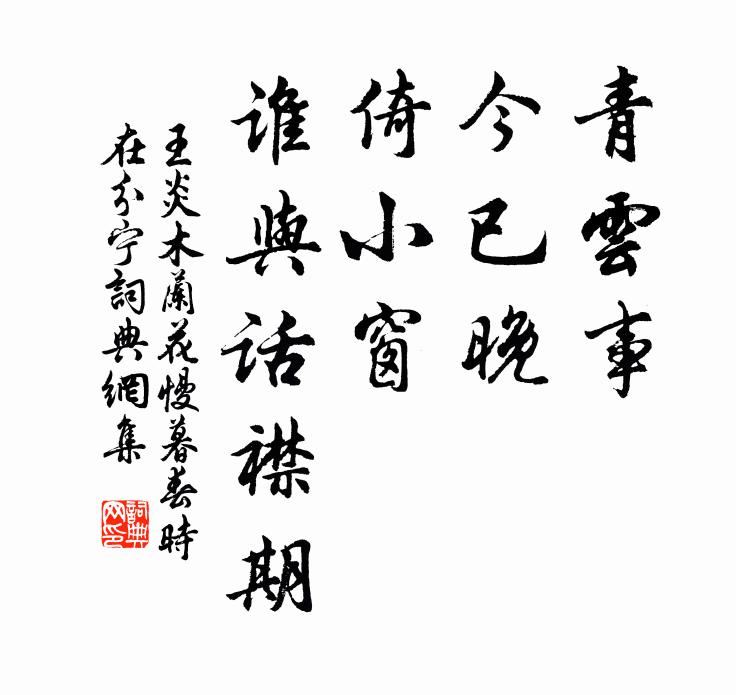 青雲事
今已晚
倚小窗
谁與话襟期
王炎木蘭花慢暮春時
在分宁詞典網集
詞典
网印